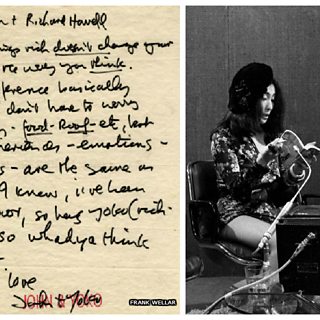 + Richard Howell
rich doesn't change your
way you think.
basically
don't have to worry
food - Roof - etc, but
- emotions -
- are the same as
I know, i've been
so has yoko (rich-
so whadya think
love
John + Yoko
JOHN & YOKO
FRANK_WELLAR